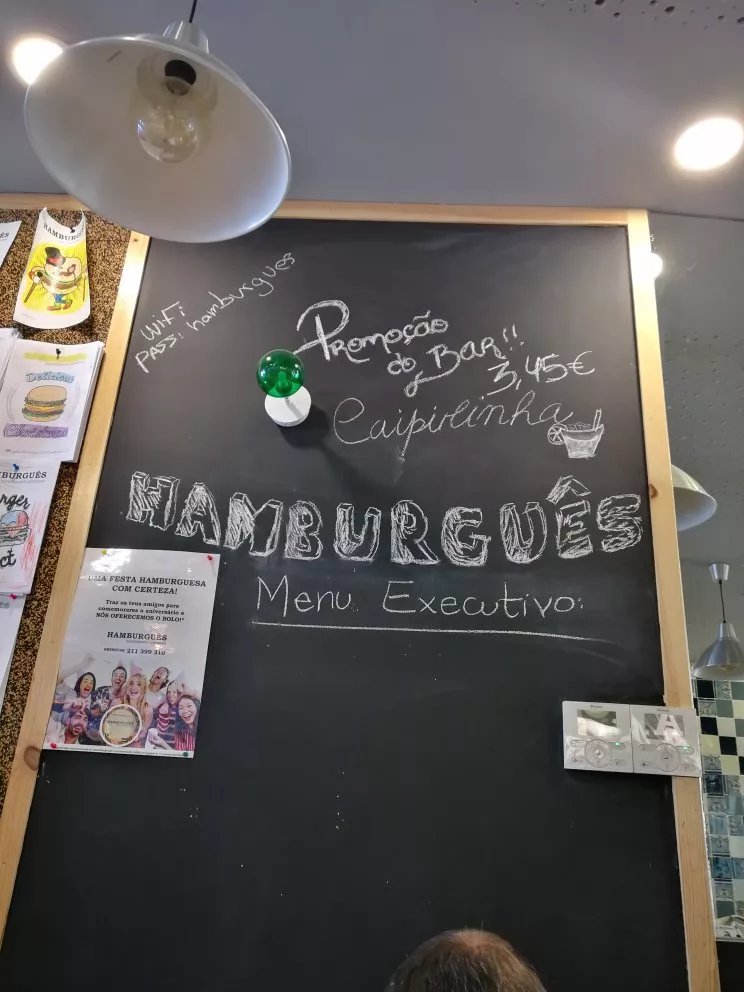 WiFi
PASS: hamburgues
Promoção
do BAR!!
3,45€
Caipirinha
HAMBURGUÊS
Menu Executivo:
UMA FESTA HAMBURGUESA
COM CERTEZA!
Traz os teus amigos para
comemorares o aniversário e
NÓS OFERECEMOS O BOLO!*
HAMBURGUÊS
RESERVAS: 211 399 310
Delicious